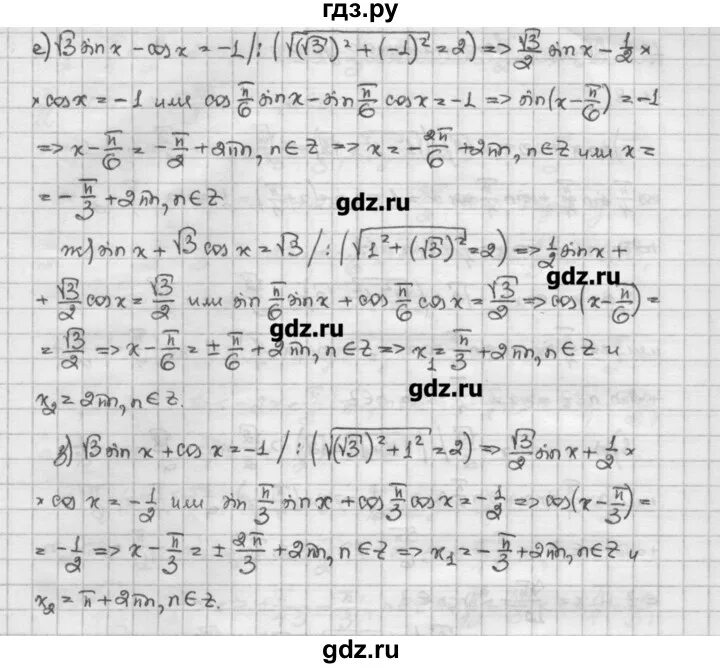 гдз.ру
е) √3 sin x − cos x = −1 /: (√((√3)² + (−1)²) = 2) => √3/2 sin x − 1/2 ×
× cos x = −1 или cos π/6 sin x − sin π/6 cos x = −1 => sin(x − π/6) = −1
=> x − π/6 = −π/2 + 2πn, n ∈ Z => x = −2π/6 + 2πn, n ∈ Z или x =
= −π/3 + 2πn, n ∈ Z
gdz.ru
ж) sin x + √3 cos x = √3 /: (√(1² + (√3)²) = 2) => 1/2 sin x +
gdz.ru
+ √3/2 cos x = √3/2 или sin π/6 sin x + cos π/6 cos x = √3/2 => cos(x − π/6) =
gdz.ru
= √3/2 => x − π/6 = ± π/6 + 2πn, n ∈ Z => x₁ = π/3 + 2πn, n ∈ Z и
gdz.ru
x₂ = 2πn, n ∈ Z.
з) √3 sin x + cos x = −1 /: (√((√3)² + 1²) = 2) => √3/2 sin x + 1/2 ×
× cos x = −1/2 или sin π/3 sin x + cos π/3 cos x = −1/2 => cos(x − π/3) =
= −1/2 => x − π/3 = ± 2π/3 + 2πn, n ∈ Z => x₁ = −π/3 + 2πn, n ∈ Z и
x₂ = π + 2πn, n ∈ Z.
gdz.ru